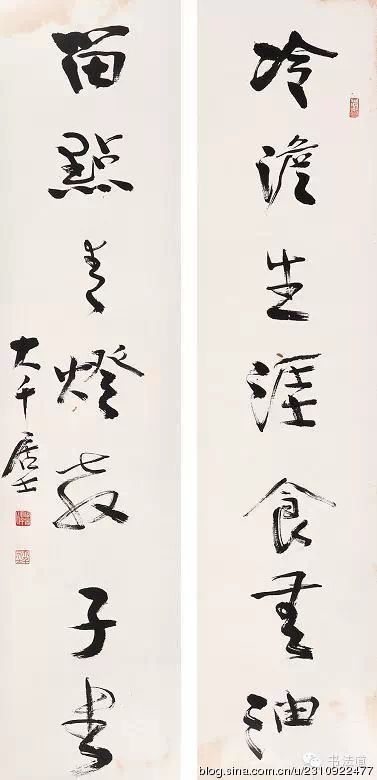 冷澹生涯食無油
留點青燈教子書
大千居士
书法道
blog.sina.com.cn/u/2310922477